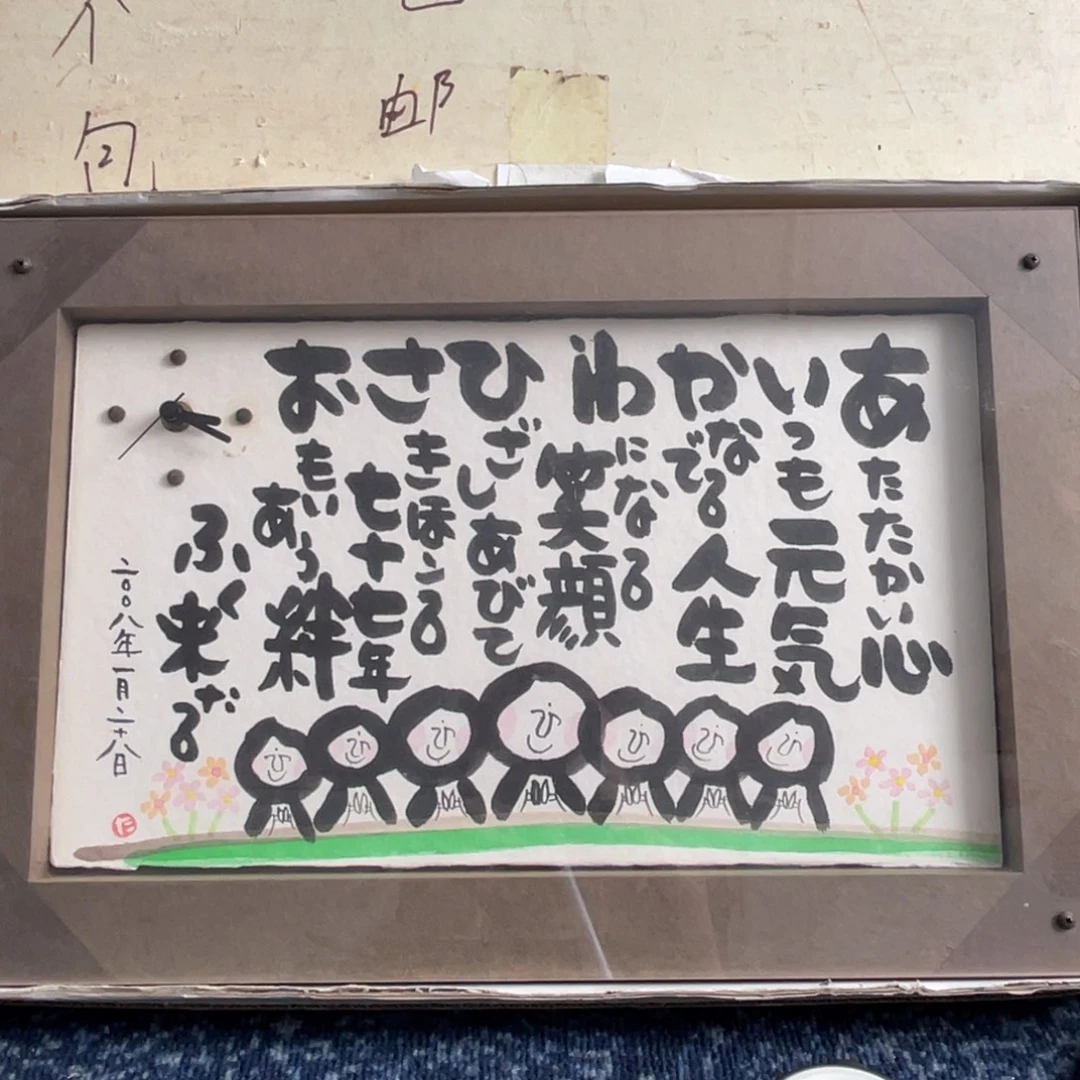 不
句
邮
あたたかい心
いつも元気
かなでる人生
わになる笑顔
ひざしあびて
さきほこる七十七年
おもいあう絆
ふく来たる
二〇〇八年一月二十八日